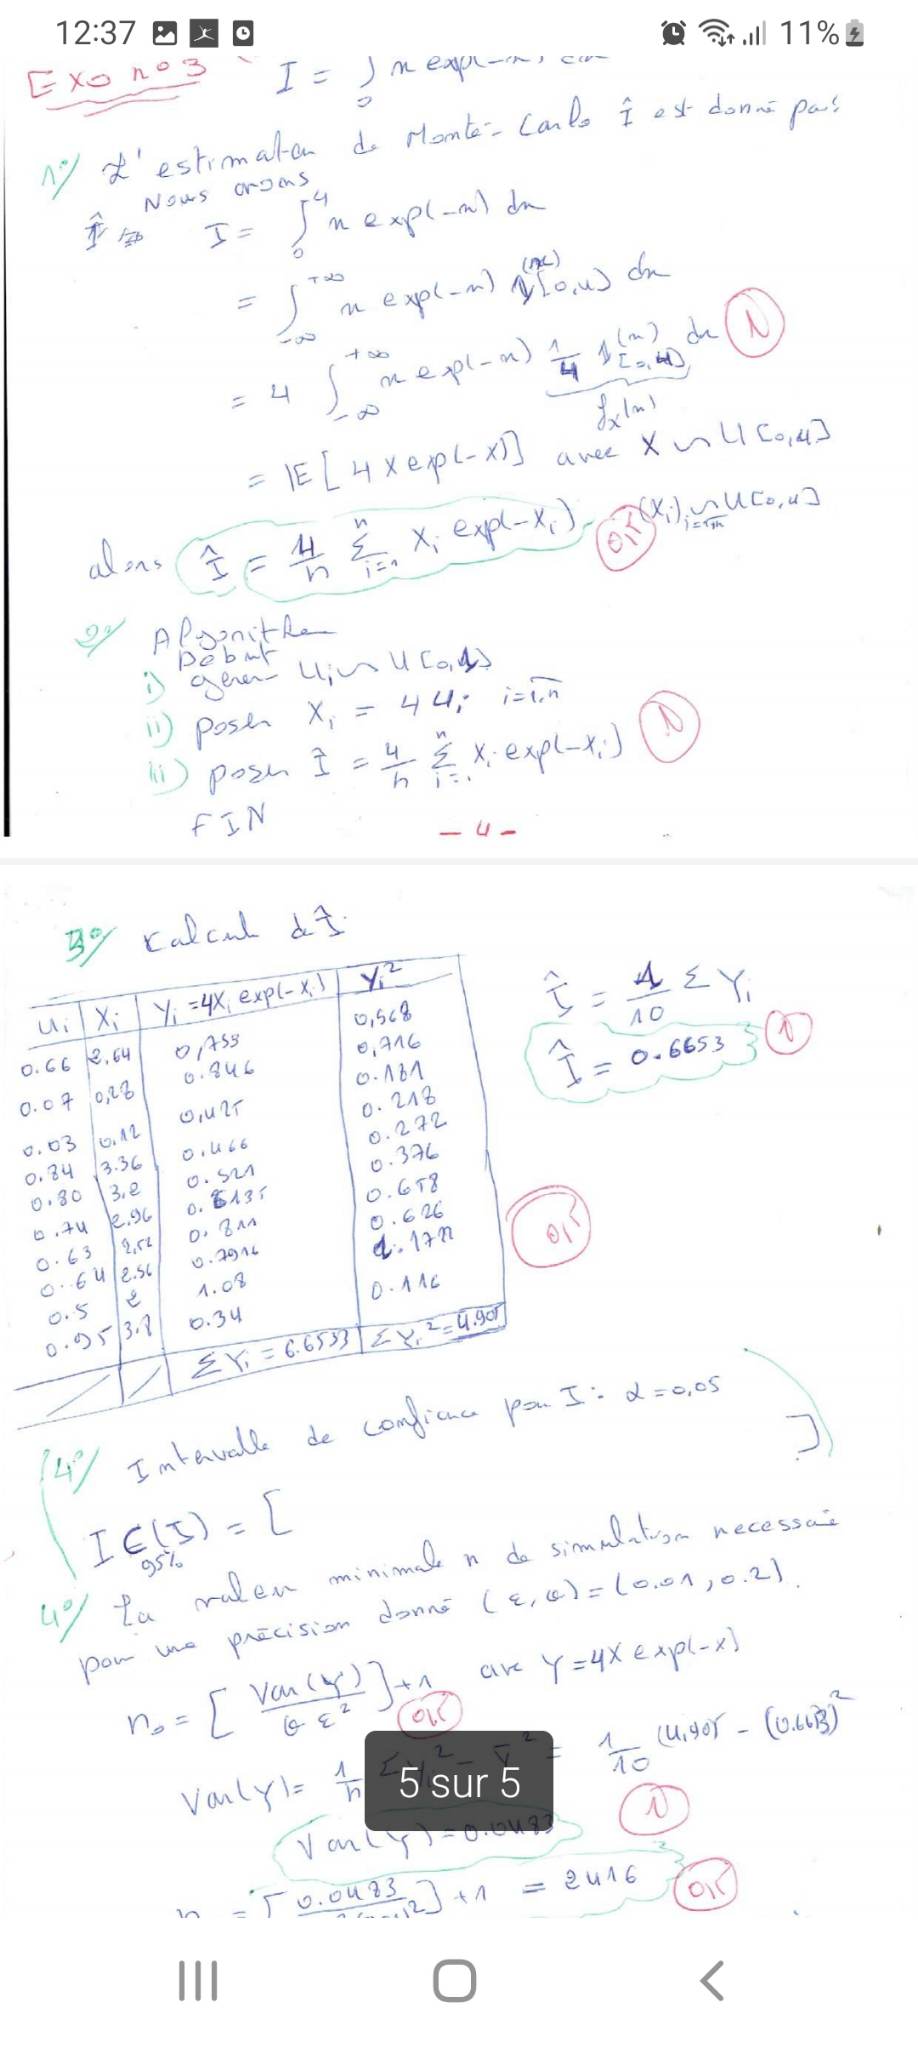 12:37
11%
Exo n°3
I = ∫ x exp(-x) dx
0
1°/ L'estimation de Monte-Carlo Î est donné par:
Nous avons
Î
I = ∫₀⁴ x exp(-x) dx
= ∫_{-∞}^{+∞} x exp(-x) 1_{[0,4]}(x) dx
= 4 ∫_{-∞}^{+∞} x exp(-x) 1/4 1_{[0,4]}(x) dx
1
f_X(x)
= IE[4X exp(-X)] avec X ~ U[0,4]
alors Î = 4/n Σ_{i=1}^{n} X_i exp(-X_i) (X_i)_{i=1,n} ~ U[0,4]
0,5
2°/ Algorithme
Début
i) génér U_i ~ U[0,1]
ii) poser X_i = 4U_i i=1,n
iii) poser Î = 4/n Σ_{i=1}^{n} X_i exp(-X_i)
1
FIN
- 4 -
3°/ Calcul de Î
U_i X_i Y_i = 4X_i exp(-X_i) Y_i²
0.66 2.64 0,753 0,568
0.07 0,28 0.846 0,716
0.03 0.12 0,425 0.181
0.84 3.36 0.466 0.218
0.80 3.2 0.521 0.272
0.74 2.96 0.6135 0.376
0.63 2,52 0.811 0.658
0.64 2.56 0.7916 0.626
0.5 2 1.08 1.17
0.95 3.8 0.34 0.116
ΣY_i = 6.6533 ΣY_i² = 4.905
Î = 1/10 Σ Y_i
Î = 0.6653
1
0,5
(4°/ Intervalle de confiance pour I: α = 0,05
IC(I) = [ ]
95%
4°/ La valeur minimale n de simulation necessaire
pour une précision donné (ε, θ) = (0.01, 0.2).
n₀ = [Var(Y) / θ ε²] + 1 avc Y = 4X exp(-X)
0,5
Var(Y) = 1/n ΣY_i² - Ȳ² = 1/10 (4,905 - (0.6653)²
5 sur 5
1
Var(Y) = 0.0483
= [0.0483] + 1 = 2416
0,5